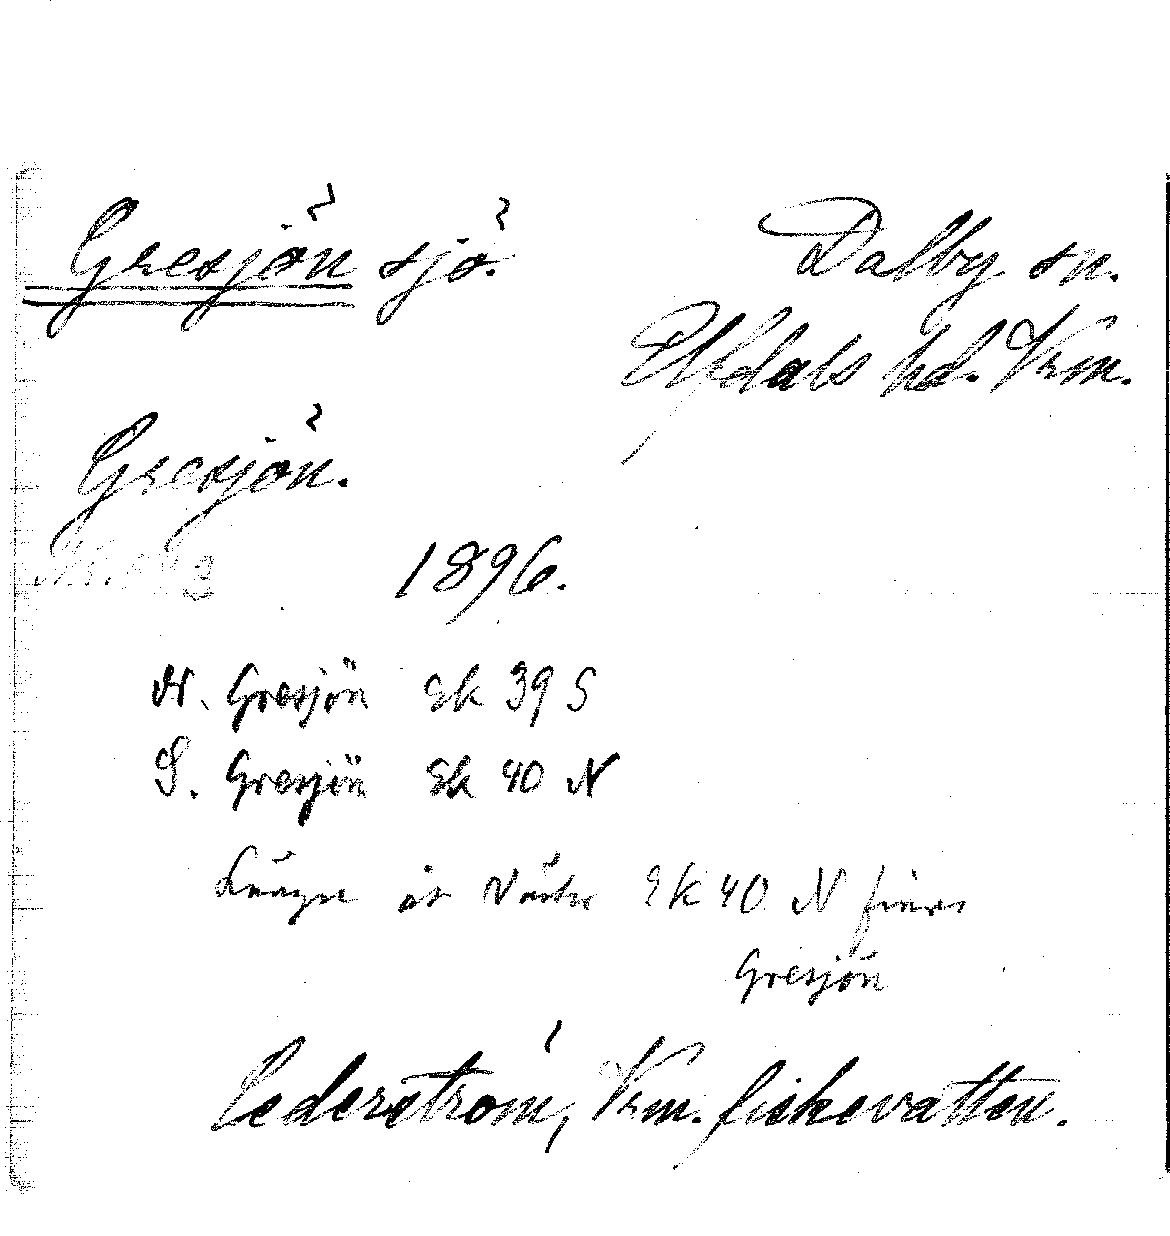 Gresjön sjö. Dalby sn.
Elfdals hd. Vrm.
Gresjön.
1896.
N. Gresjön Ek 39 S
S. Gresjön Ek 40 N
Längre åt Väster Ek 40 N finns
Gresjön
Cederström, Vrm. fiskevatten.